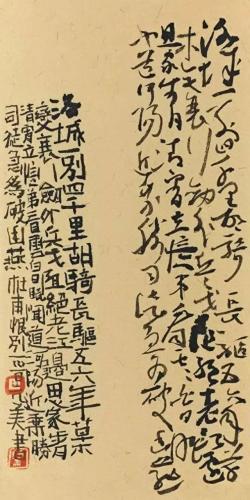 洛城一別四千里胡騎長驅五六年草
木變衰行劍外兵戈阻絕老江邊
思家步月清宵立憶弟看雲白日眠
聞道河陽近乘勝司徒急為破幽燕
洛城一別四千里胡騎長驅五六年草木
變衰行劍外兵戈阻絕老江邊思家步月
清宵立憶弟看雲白日眠聞道河陽近乘勝
司徒急為破幽燕杜甫恨別美書